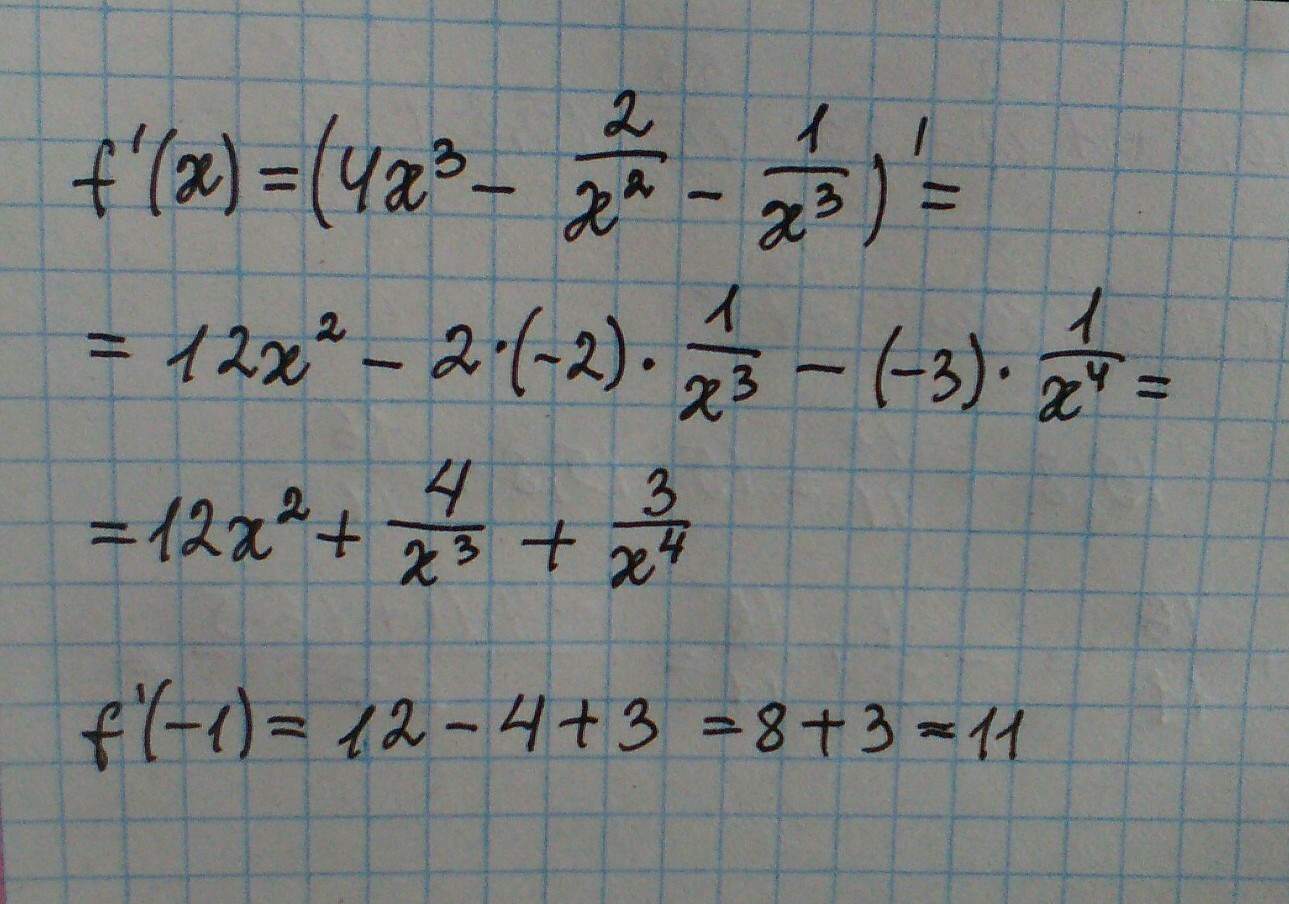 f'(x) = (4x³ - 2/x² - 1/x³)' =
= 12x² - 2·(-2)·1/x³ - (-3)·1/x⁴ =
= 12x² + 4/x³ + 3/x⁴
f'(-1) = 12 - 4 + 3 = 8 + 3 = 11